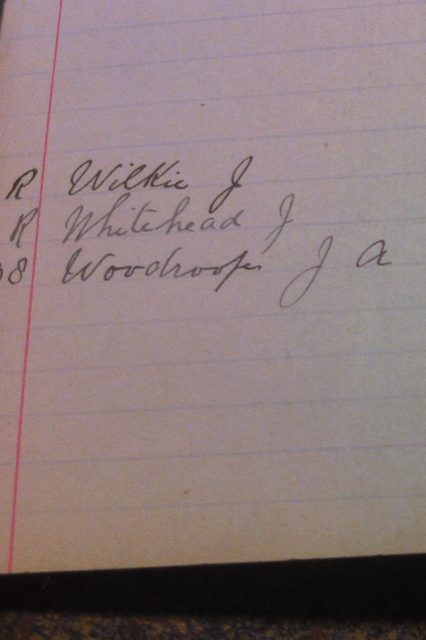 R Wilkie J
R Whitehead J
8 Woodroofe J A